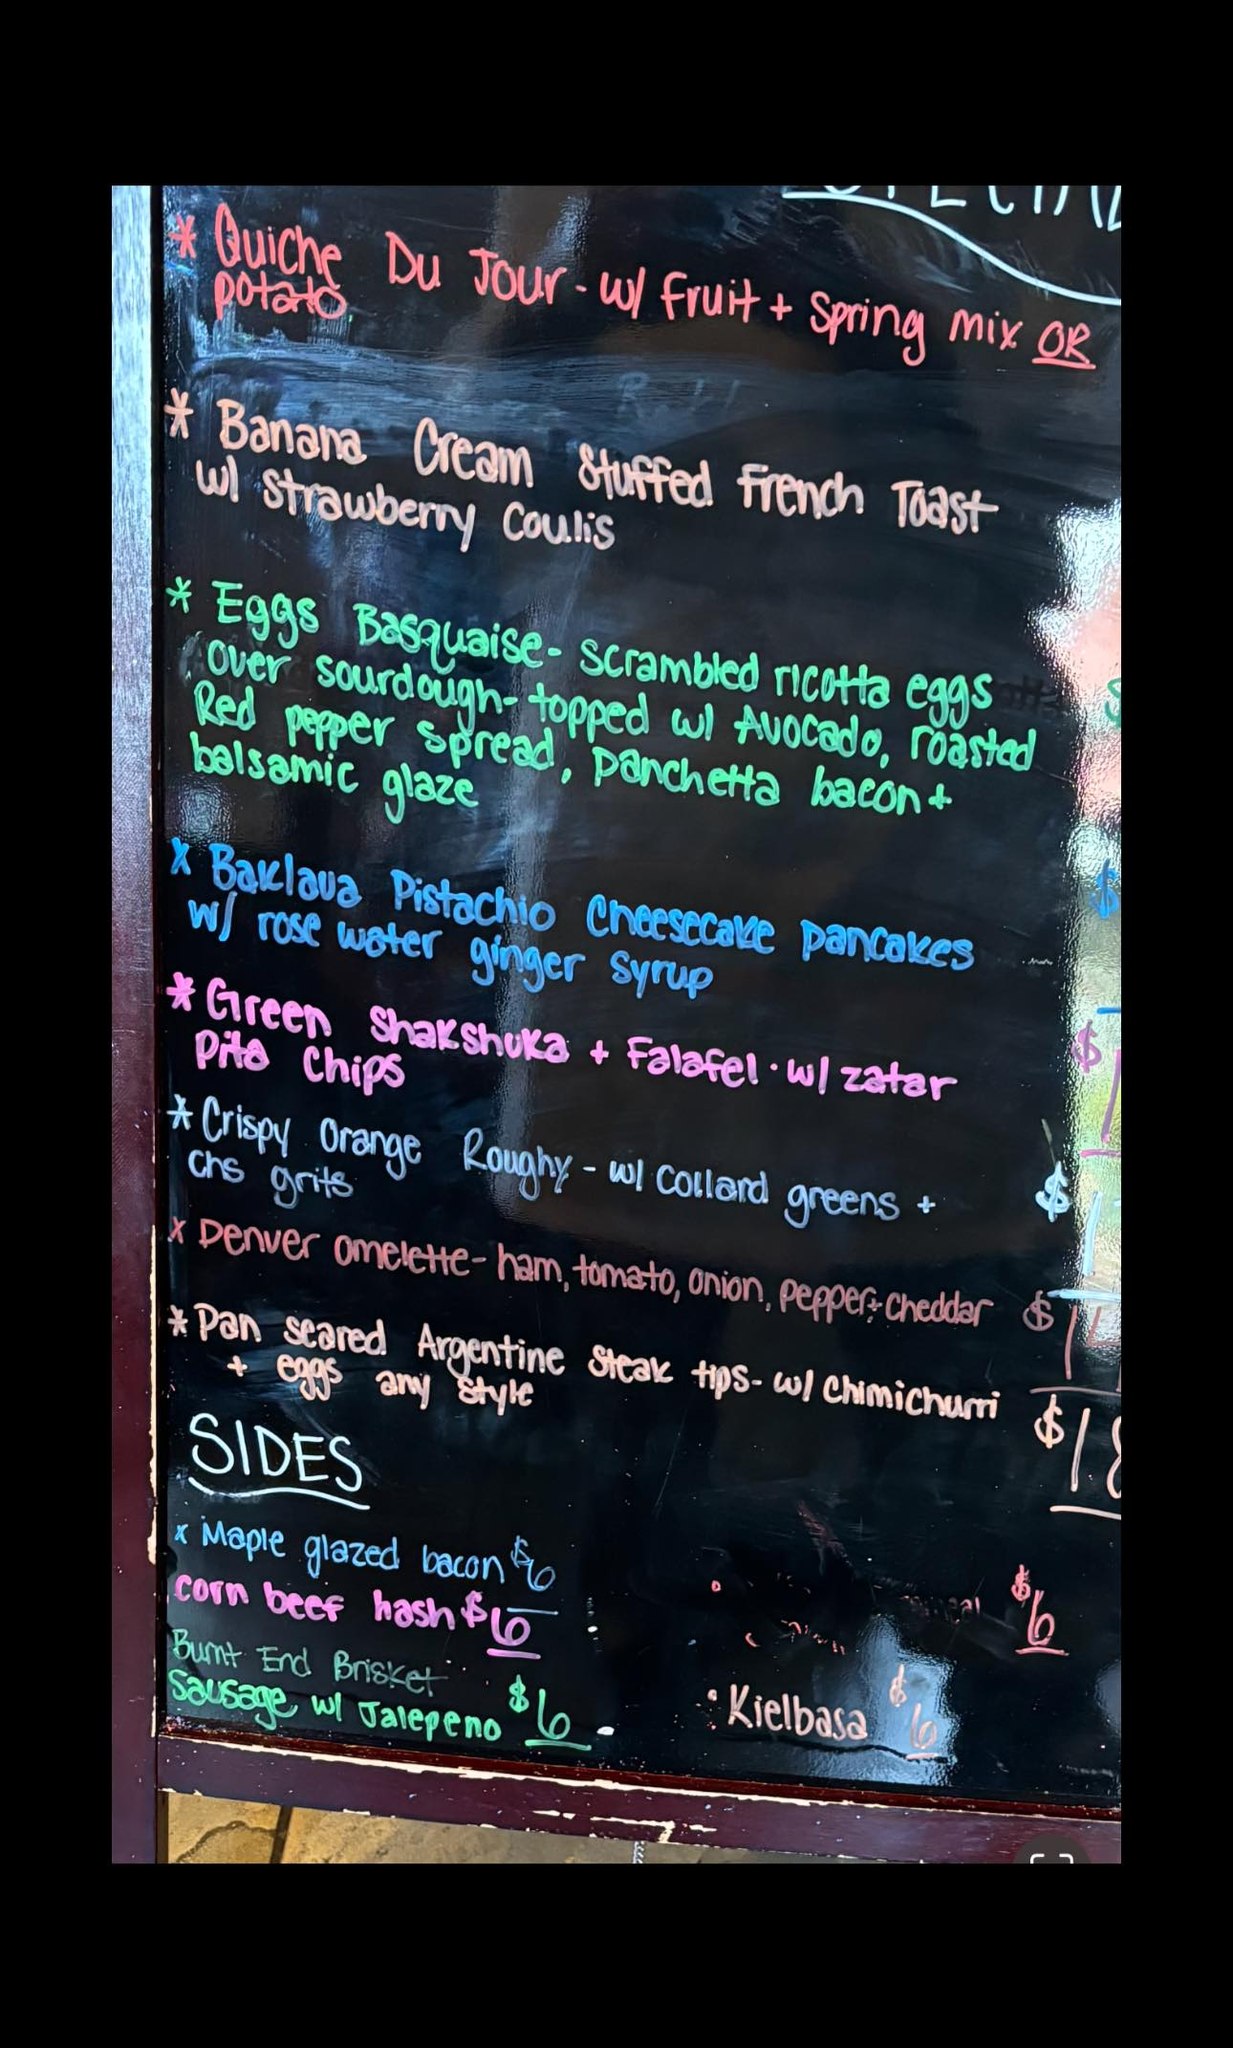 * Quiche Du Jour - w/ fruit + spring mix OR
potato
* Banana Cream Stuffed French Toast
w/ Strawberry Coulis
* Eggs Basquaise - scrambled ricotta eggs
over sourdough - topped w/ Avocado, roasted
Red pepper spread, panchetta bacon +
balsamic glaze
x Baklava Pistachio Cheesecake pancakes
w/ rose water ginger syrup
* Green Shakshuka + Falafel · w/ zatar
Pita Chips
* Crispy Orange Roughy - w/ collard greens +
chs grits
x Denver omelette - ham, tomato, onion, pepper + cheddar
* Pan seared Argentine steak tips - w/ chimichurri $18
+ eggs any style
SIDES
x Maple glazed bacon $6
corn beef hash $6
$6
Burnt End Brisket
Sausage w/ Jalepeno $6
: Kielbasa $6